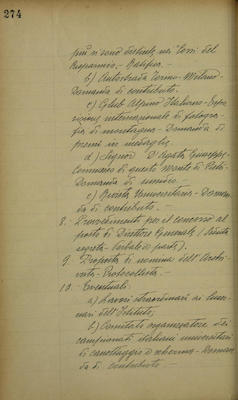 274
più si sono distinte nei Corsi del
Risparmio. - Ratifica. -
b) Autostrada Torino - Milano -
Domanda di contributo. -
c) Club Alpino Italiano - Espo
sizione internazionale di fotogra-
fia di montagna - Domanda di
premi in medaglie.
d) Signor D'Agata Giuseppe -
Commesso di questo Monte di Pietà -
Domanda di sussidio.
e) Rivista Universitaria - Doman
da di contributo. -
8. - Provvedimenti per il concorso al
posto di Direttore Generale (Seduta
segreta - Verbale a parte).
9. Proposta di nomina dell'Archi-
vista - Protocollista. -
10. - Eventuali.
a) Lavori straordinari ai lucer
nari dell'Istituto;
b) Comitato organizzatore dei
campionati italiani universitari
di canottaggio e scherma - Doman
da di contributo. -